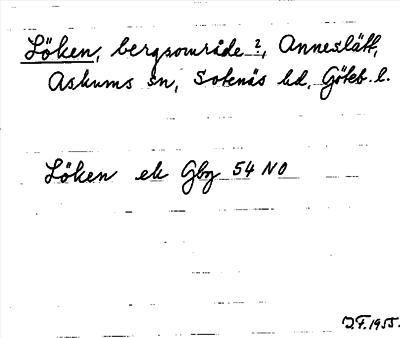 Löken, bergsområde ?, Anneslätt,
Askums sn, Sotenäs hd, Göteb. l.
Löken ek Gbg 54 NO
J.F. 1955.